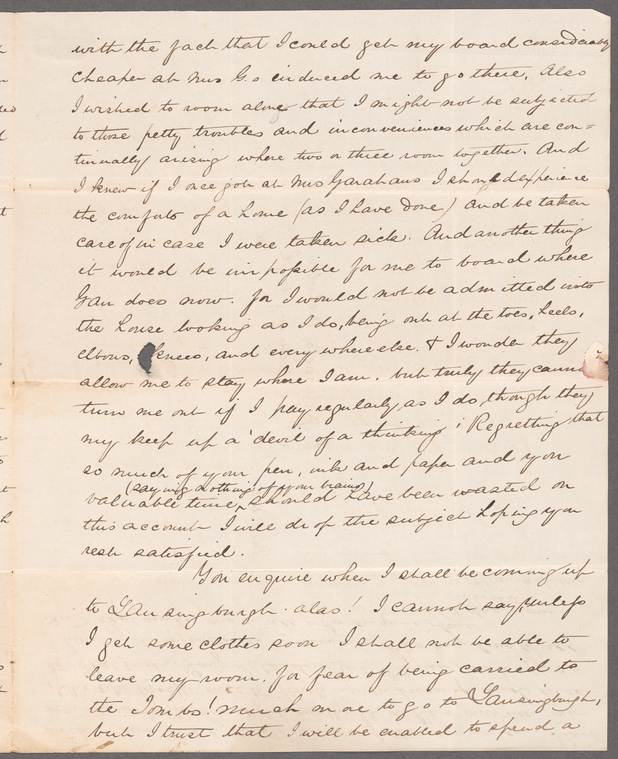 with the fact that I could get my board considerably
cheaper at Mrs G.s induced me to go there. Also
I wished to room alone that I might not be subjected
to those petty troubles and inconveniences which are con=
tinually arising where two or three room together. And
I knew if I once got at Mrs Garahans I should experience
the comforts of a home (as I have done) and be taken
care of in case I were taken sick. And another thing
it would be impossible for me to board where
Gan does now. for I would not be admitted into
the house looking as I do, being out at the toes, heels,
elbows, knees, and every where else. & I wonder they
allow me to stay where I am. but truly they cannot
turn me out if I pay regularly as I do, though they
my keep up a devil of a thinking ; Regretting that
so much of your pen, ink and paper and you
(saying nothing of your brains)
valuable time, should have been wasted on
this account I will drop the subject hoping you
rest satisfied.
You enquire when I shall be coming up
to Lansingburgh. alas! I cannot say, unless
I get some clothes soon I shall not be able to
leave my room. for fear of being carried to
the Tombs! much more to go to Lansingburgh,
but I trust that I will be enabled to spend a